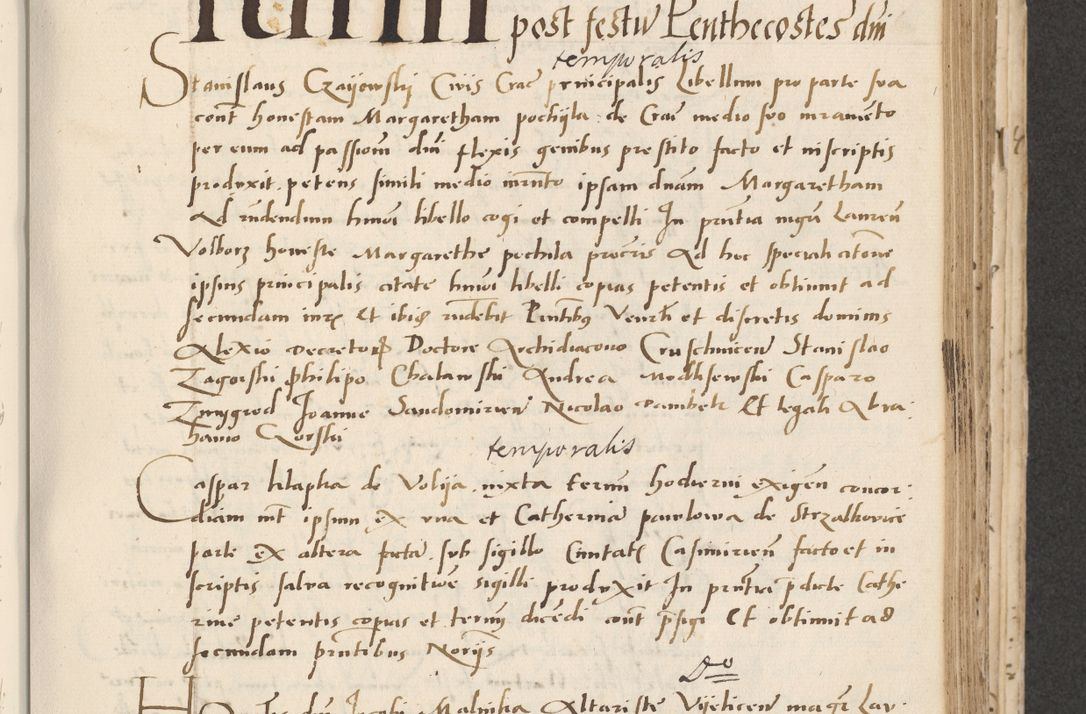 post festu Penthecostes dni
temporalis
Stanislaus Czaijowskij Civis Crac principalis Libellum pro parte sua
cont honestam Margaretham pochijla de Crac medio suo iuramento
per eum ad passiom dni flexis genibus prestito facto et in scriptis
produxit petens simili medio iurnto ipsam dnam Margaretham
Ad rndendum hmoi libello cogi et compelli In prntia mgri Lauren
Volborz honeste Margarethe pochila procris Ad hoc speciali citone
ipsius principalis citate hmoi libelli copias petentis et obtinuit ad
secundam iurx Et ibi rndebit Prntibus Venerli et discretis dominis
Alexio Decretor Doctore Archidiacono Cruschwicen Stanislao
Zagorski Philipo Chalawski Andrea Modlisewski Casparo
Zmygrod Joanne Sandomirien Nicolao Dambek Et legali Abra
hamo Gorski
temporalis
Caspar klapka de Volija iuxta termi hodierni exigen concor
diam int ipsum ex una et Catherina pawlowa de Strzalkovice
parte ex altera facta sub sigillo Civitatis Casimirien facto et in
scriptis salva recognitioe sigilli produxit In prntia pdicte Cathe
rine petentis copias et termi dicedi cont psigi Et obtinuit ad
secundam prntibus Norijs
Do
dni Jacobi Malnika Altariste Vijelicen magri Lau